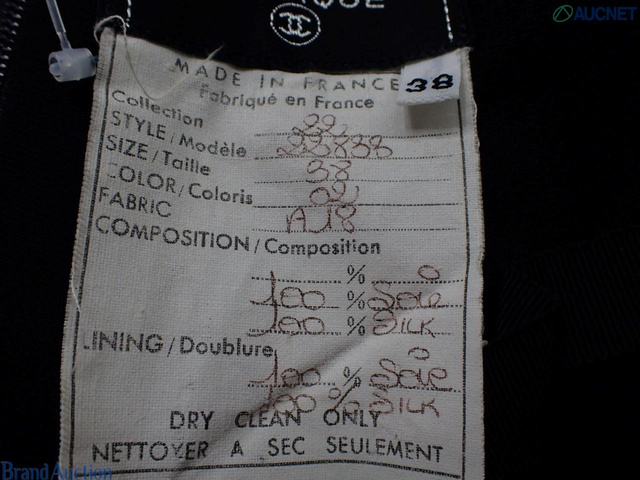 AUCNET
MADE IN FRANCE
38
Fabriqué en France
Collection 22
STYLE/Modèle 22833
SIZE/Taille 38
COLOR/Coloris 02
FABRIC A18
COMPOSITION/Composition
% 0
100 % Soie
100 % SILK
LINING/Doublure
100 % Soie
100 % SILK
DRY CLEAN ONLY
NETTOYER A SEC SEULEMENT
Brand Auction